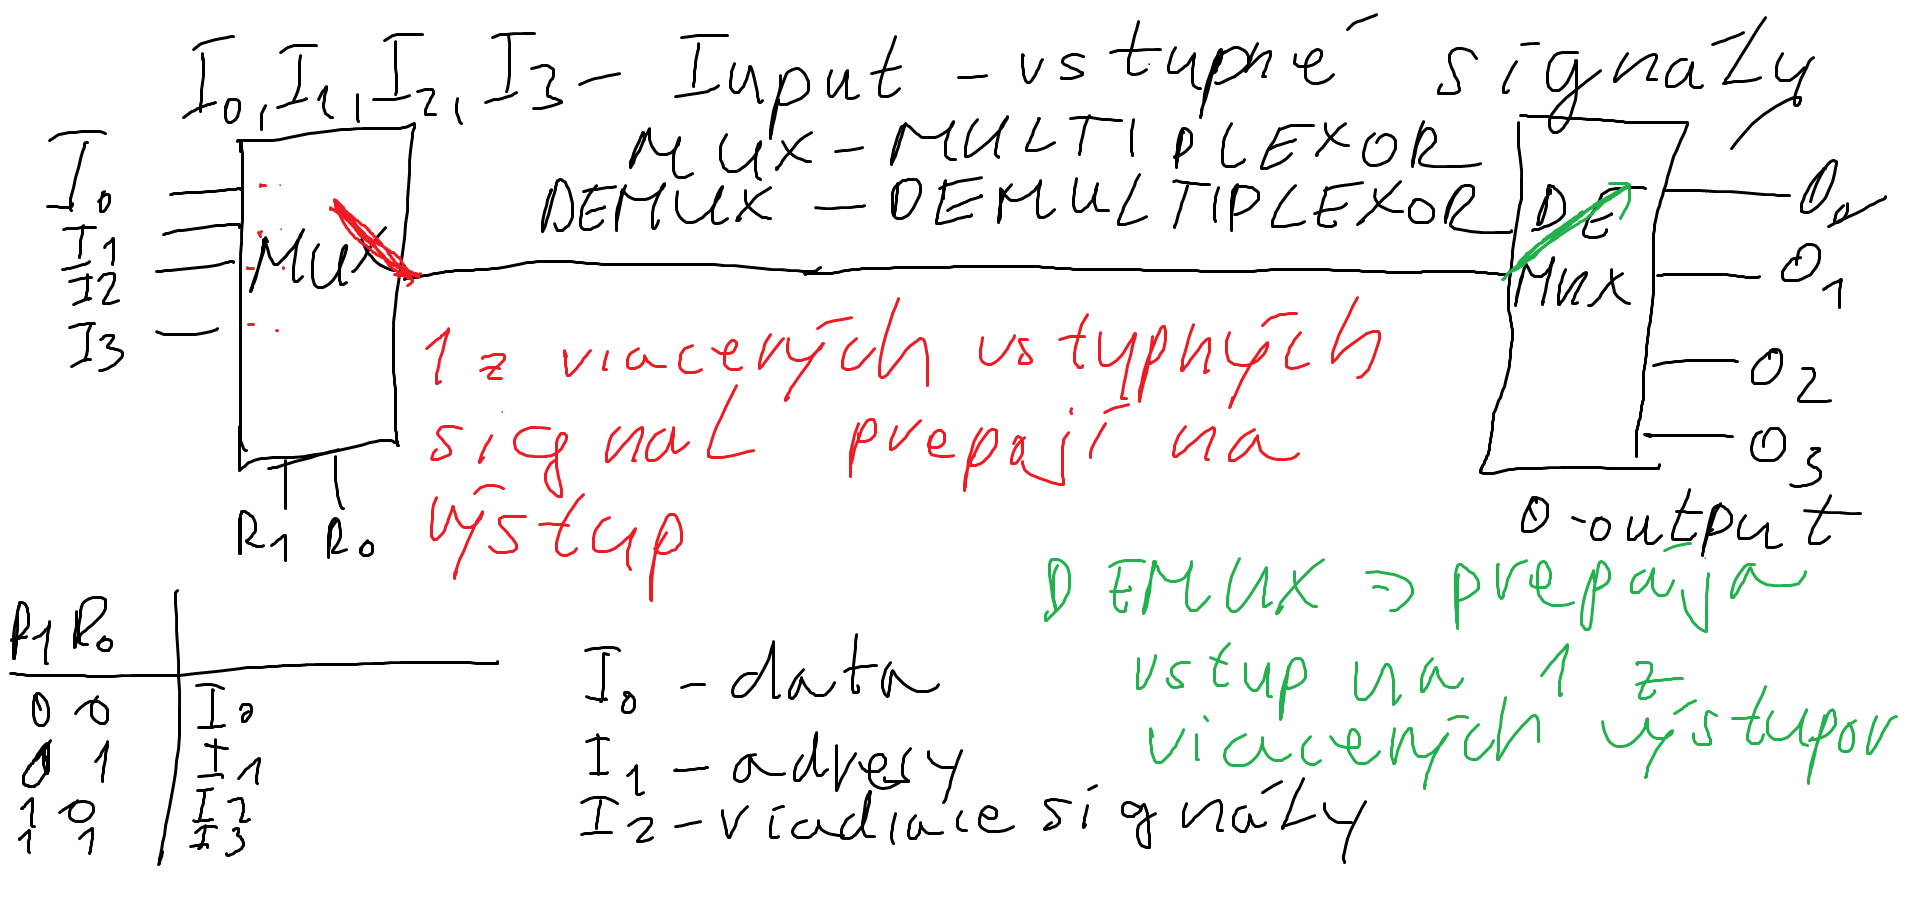 I0, I1, I2, I3 - Input - vstupné signály
MUX - MULTIPLEXOR
DEMUX - DEMULTIPLEXOR
I0
I1
I2
I3
MUX
R1 R0
DE
MUX
O0
O1
O2
O3
O - output
1 z viacerých vstypných
signal prepají na
výstup
DEMUX => prepája
vstup na 1 z
viacerých výstupov
R1 R0
0 0 I0
0 1 I1
1 0 I2
1 1 I3
I0 - data
I1 - adresy
I2 - riadiace signály